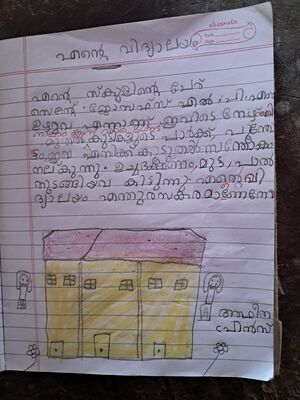 classmate
Date
Page
എന്റെ വിദ്യാലയം
എന്റെ സ്കൂളിന്റെ പേര്
സെന്റ്. ജോസഫ്സ് എൽ.പി.എസ്
എന്നാണ് ഇവിടെ
കുട്ടികളുടെ പാർക്ക്, പൂന്തോ
ട്ടം എനിക്ക് കൂടുതൽ സന്തോഷം
നല്കുന്നു. ഉച്ചഭക്ഷണം, മുട്ട, പാൽ
തുടങ്ങിയവ കിട്ടുന്നു. എന്റെ വി
ദ്യാലയം എന്തുരസകരമാണെന്നോ
അഫീന
പ്രിൻസ്